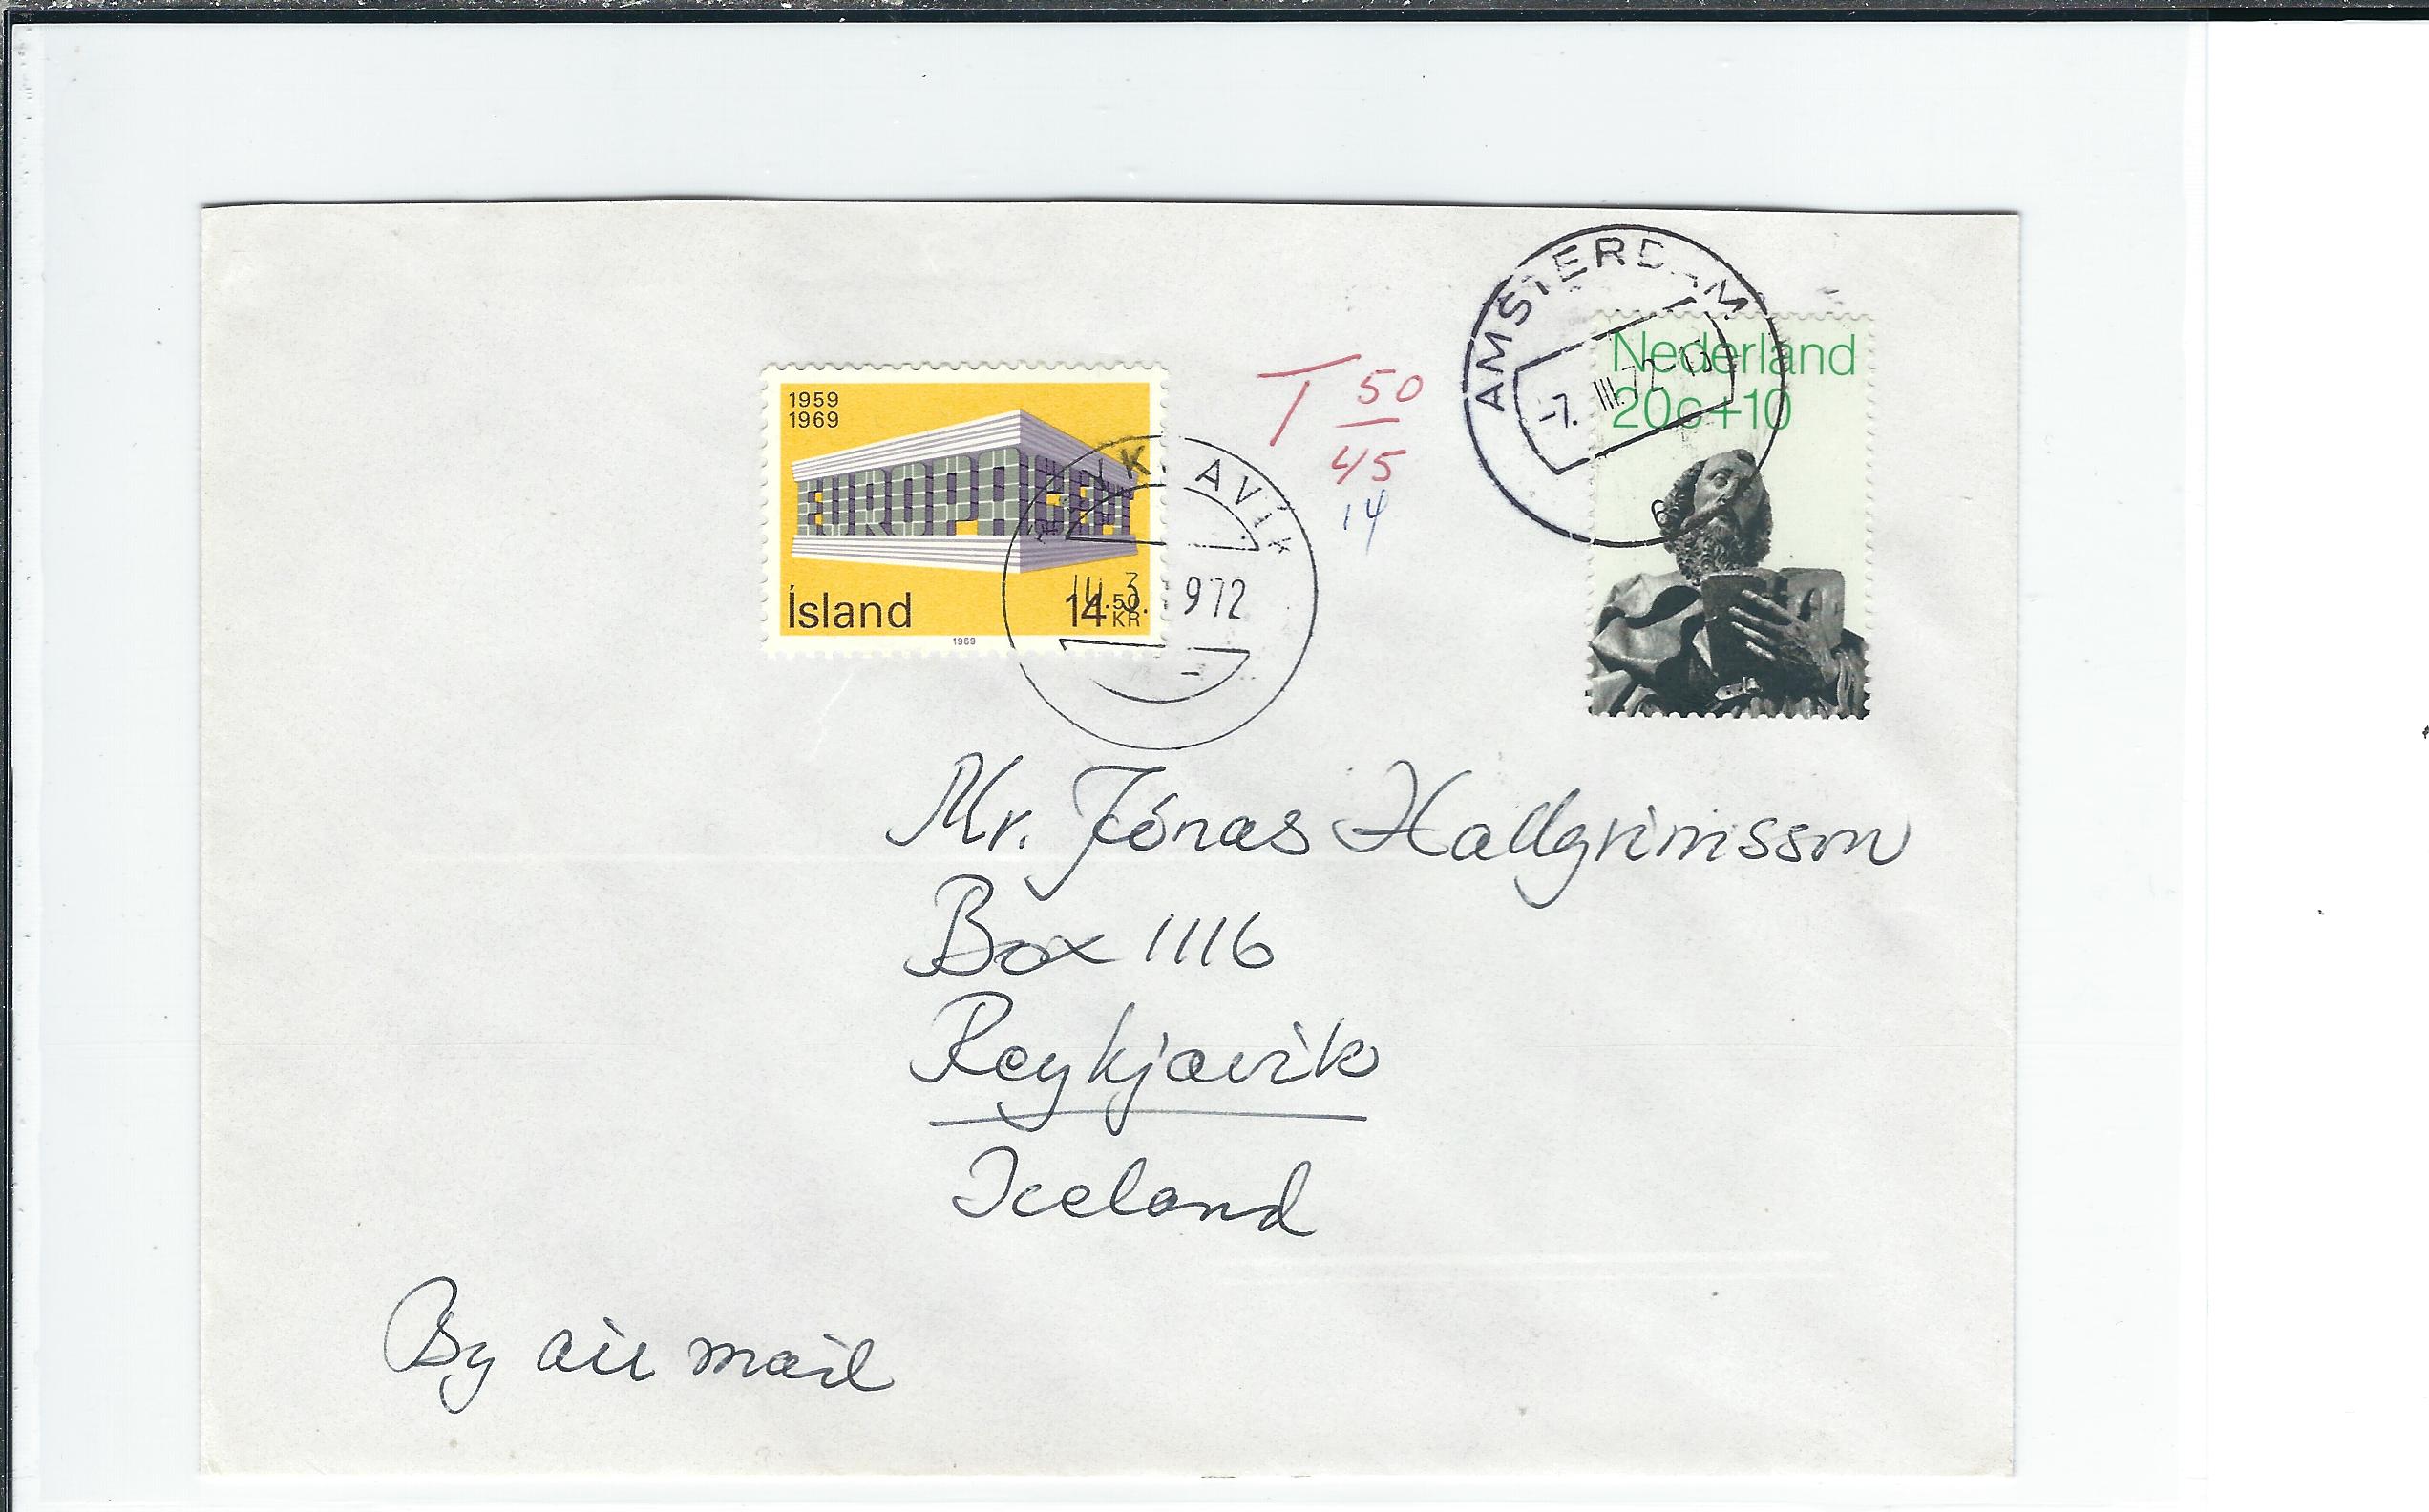 1959
1969
EUROPA CEPT
Ísland
14.50
KR
1969
10. 3. 1972
T 50
45
14
AMSTERDAM
-7. III. 72
Nederland
20c+10
Mr. Jónas Hallgrimsson
Box 1116
Reykjavik
Iceland
By air mail